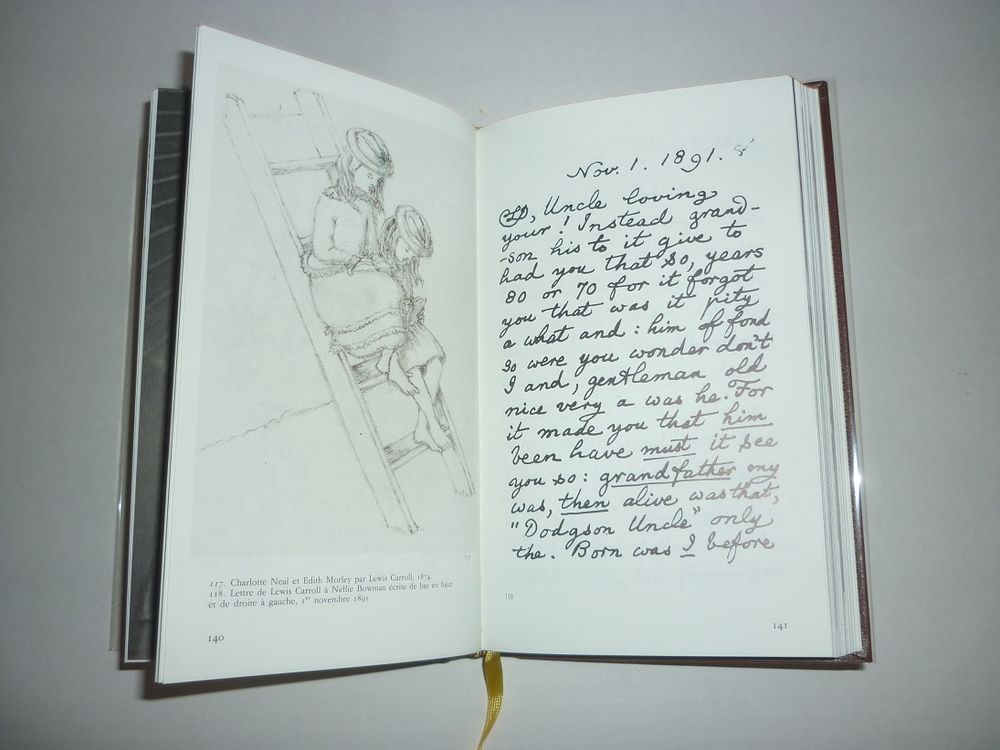 117. Charlotte Neal et Edith Morley par Lewis Carroll, 1874.
118. Lettre de Lewis Carroll à Nellie Bowman écrite de bas en haut
et de droite à gauche, 1er novembre 1891.
140
Nov. 1. 1891.
CLD, Uncle loving
your! Instead grand-
-son his to it give to
had you that so, years
80 or 70 for it forgot
you that was it pity
a what and: him of fond
so were you wonder don't
I and, gentleman old
nice very a was he. For
it made you that him
been have must it see
you so: grandfather my
was, then alive was that,
"Dodgson Uncle" only
the. Born was I before
118
141